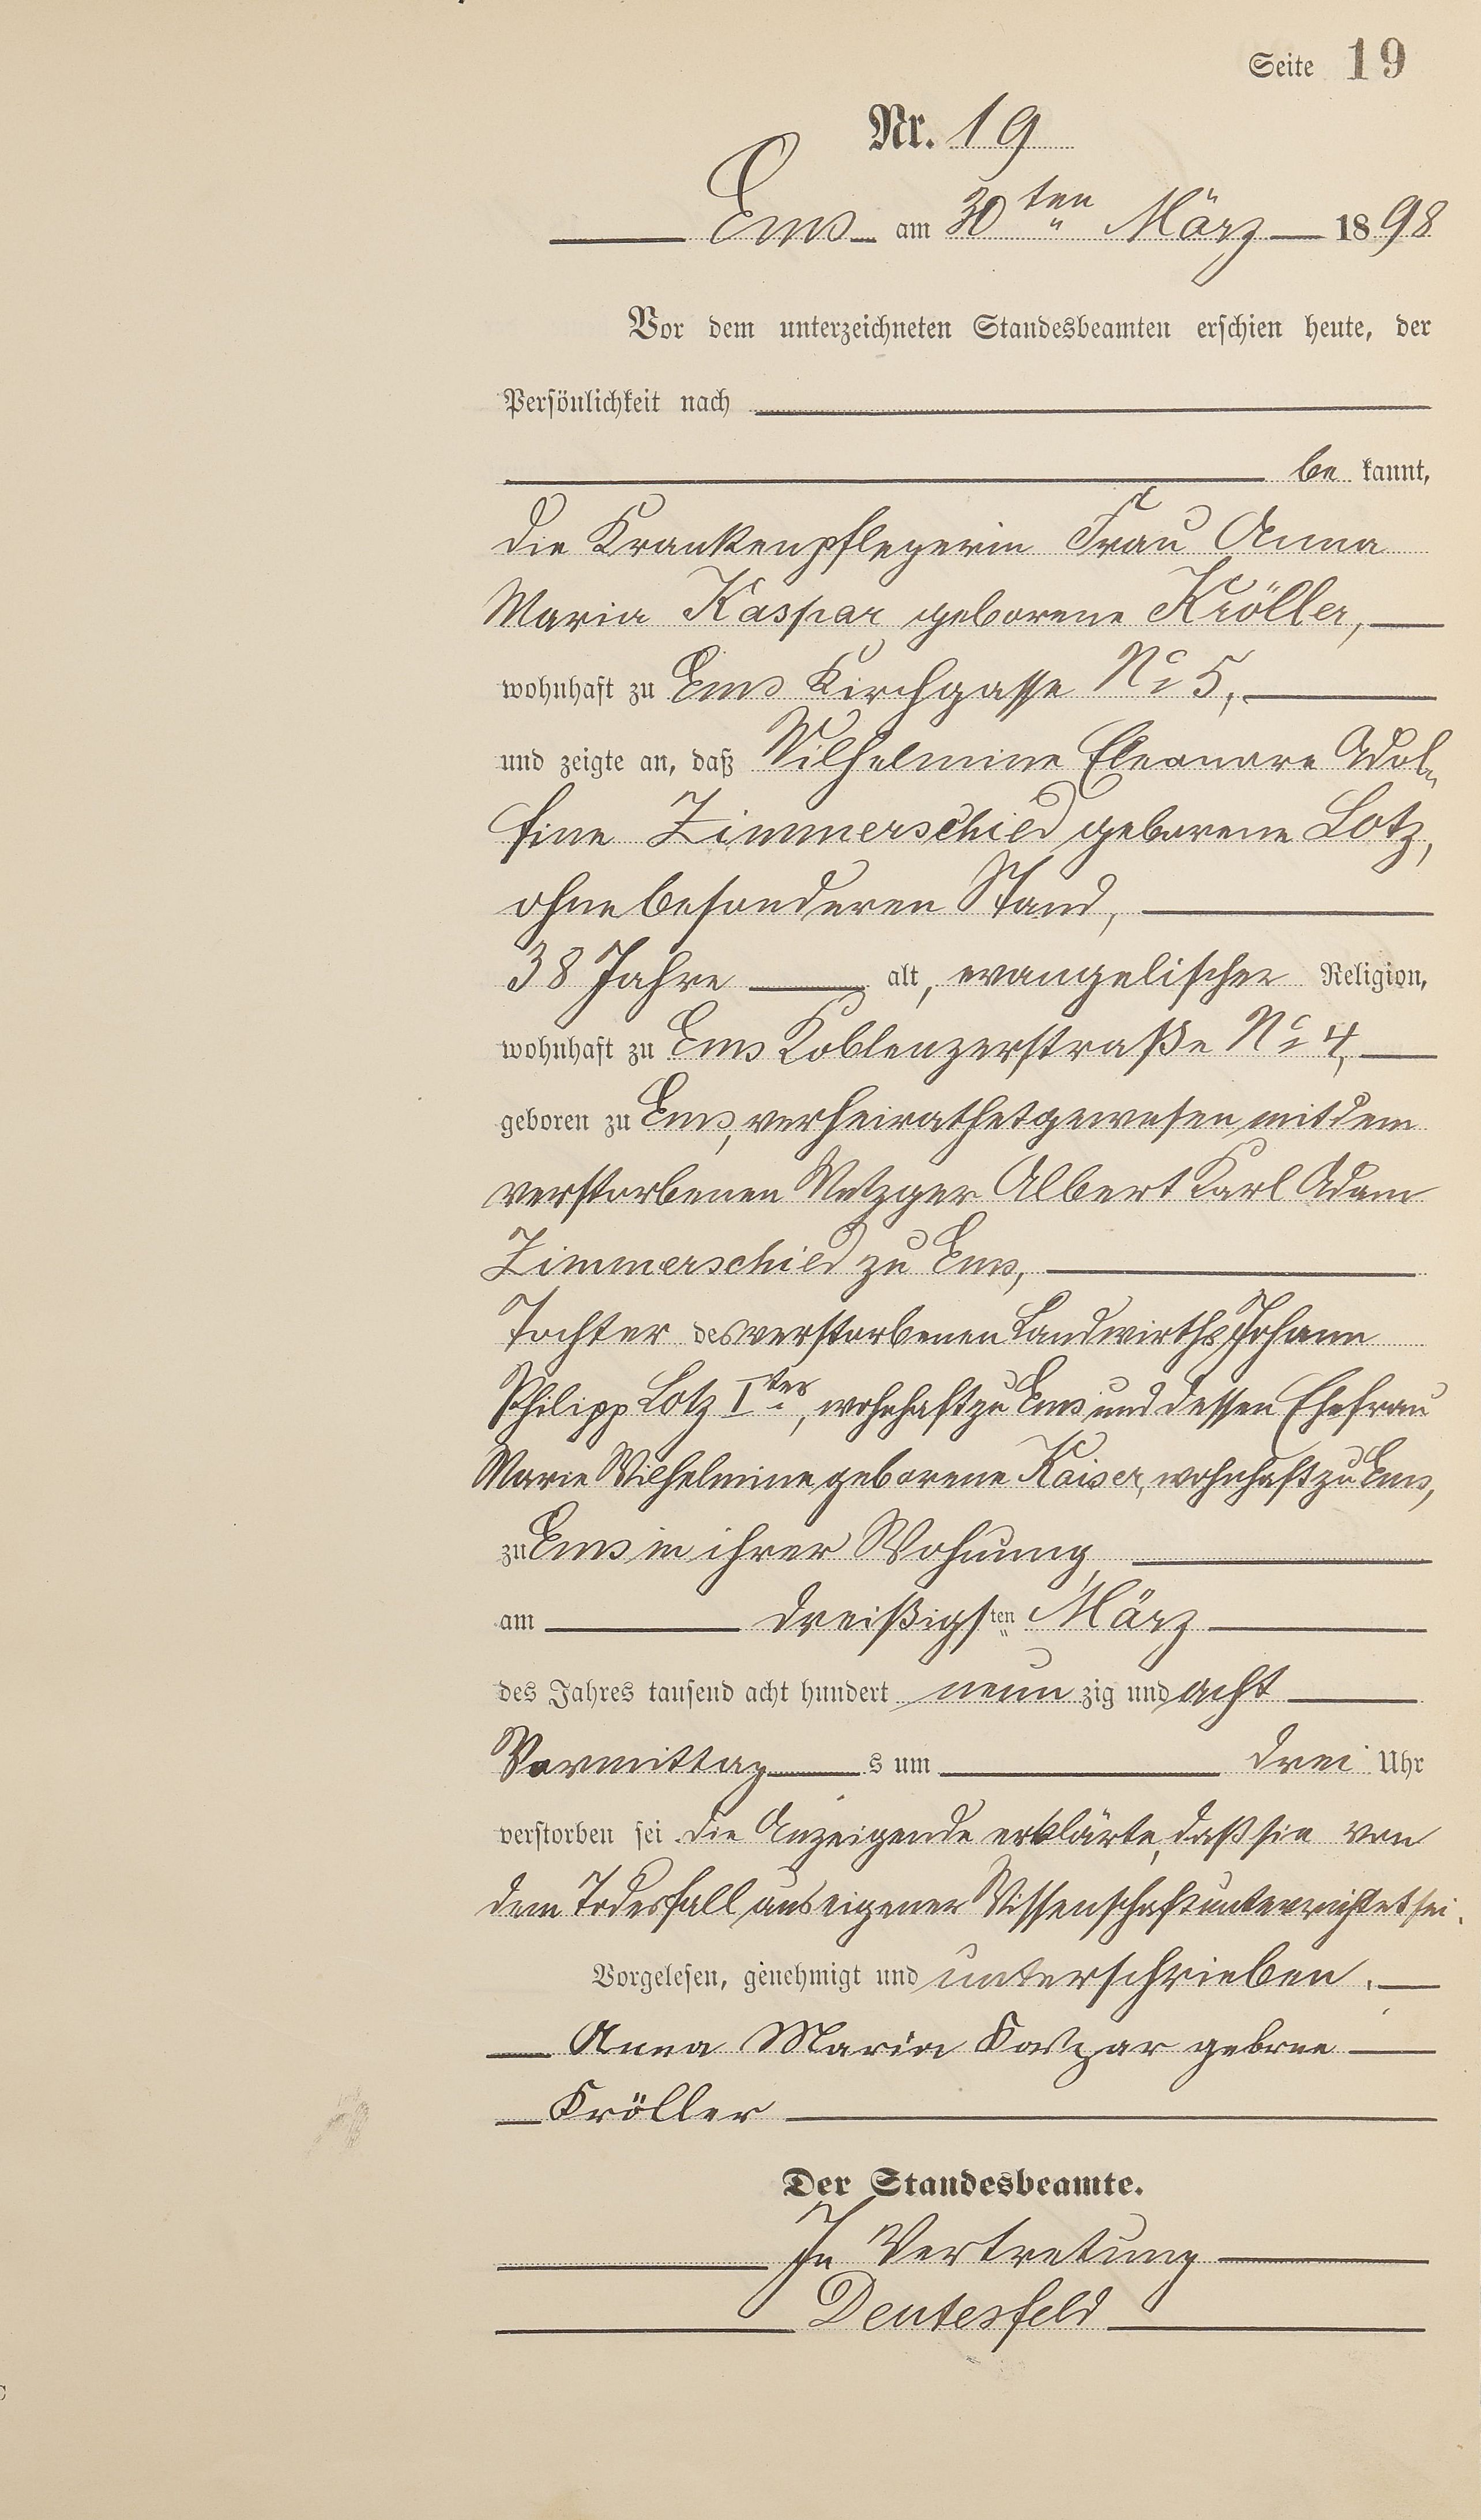 Seite 19
Nr. 19
Ems am 30ten März 1898
Vor dem unterzeichneten Standesbeamten erschien heute, der
Persönlichkeit nach
be kannt,
die Krankenpflegerin Frau Anna
Maria Kaspar geborene Kröller,
wohnhaft zu Ems Kirchgasse No 5,
und zeigte an, daß Wilhelmine Eleonore Adol-
fine Zimmerschied geborene Lotz,
ohne besonderen Stand,
38 Jahre alt, evangelischer Religion,
wohnhaft zu Ems Koblenzerstraße No 4,
geboren zu Ems, verheirathet gewesen mit dem
verstorbenen Metzger Albert Karl Adam
Zimmerschied zu Ems,
Tochter des verstorbenen Landwirths Johann
Philipp Lotz Iter, wohnhaft zu Ems und dessen Ehefrau
Marie Wilhelmine geborene Kaiser, wohnhaft zu Ems,
zu Ems in ihrer Wohnung
am dreißigsten März
des Jahres tausend acht hundert neun zig und acht
Vormittag s um drei Uhr
verstorben sei. Die Anzeigende erklärte, daß sie von
dem Todesfall aus eigener Wissenschaft unterrichtet sei.
Vorgelesen, genehmigt und unterschrieben.
Anna Maria Kaspar gebrne
Kröller
Der Standesbeamte.
In Vertretung
Deutesfeld